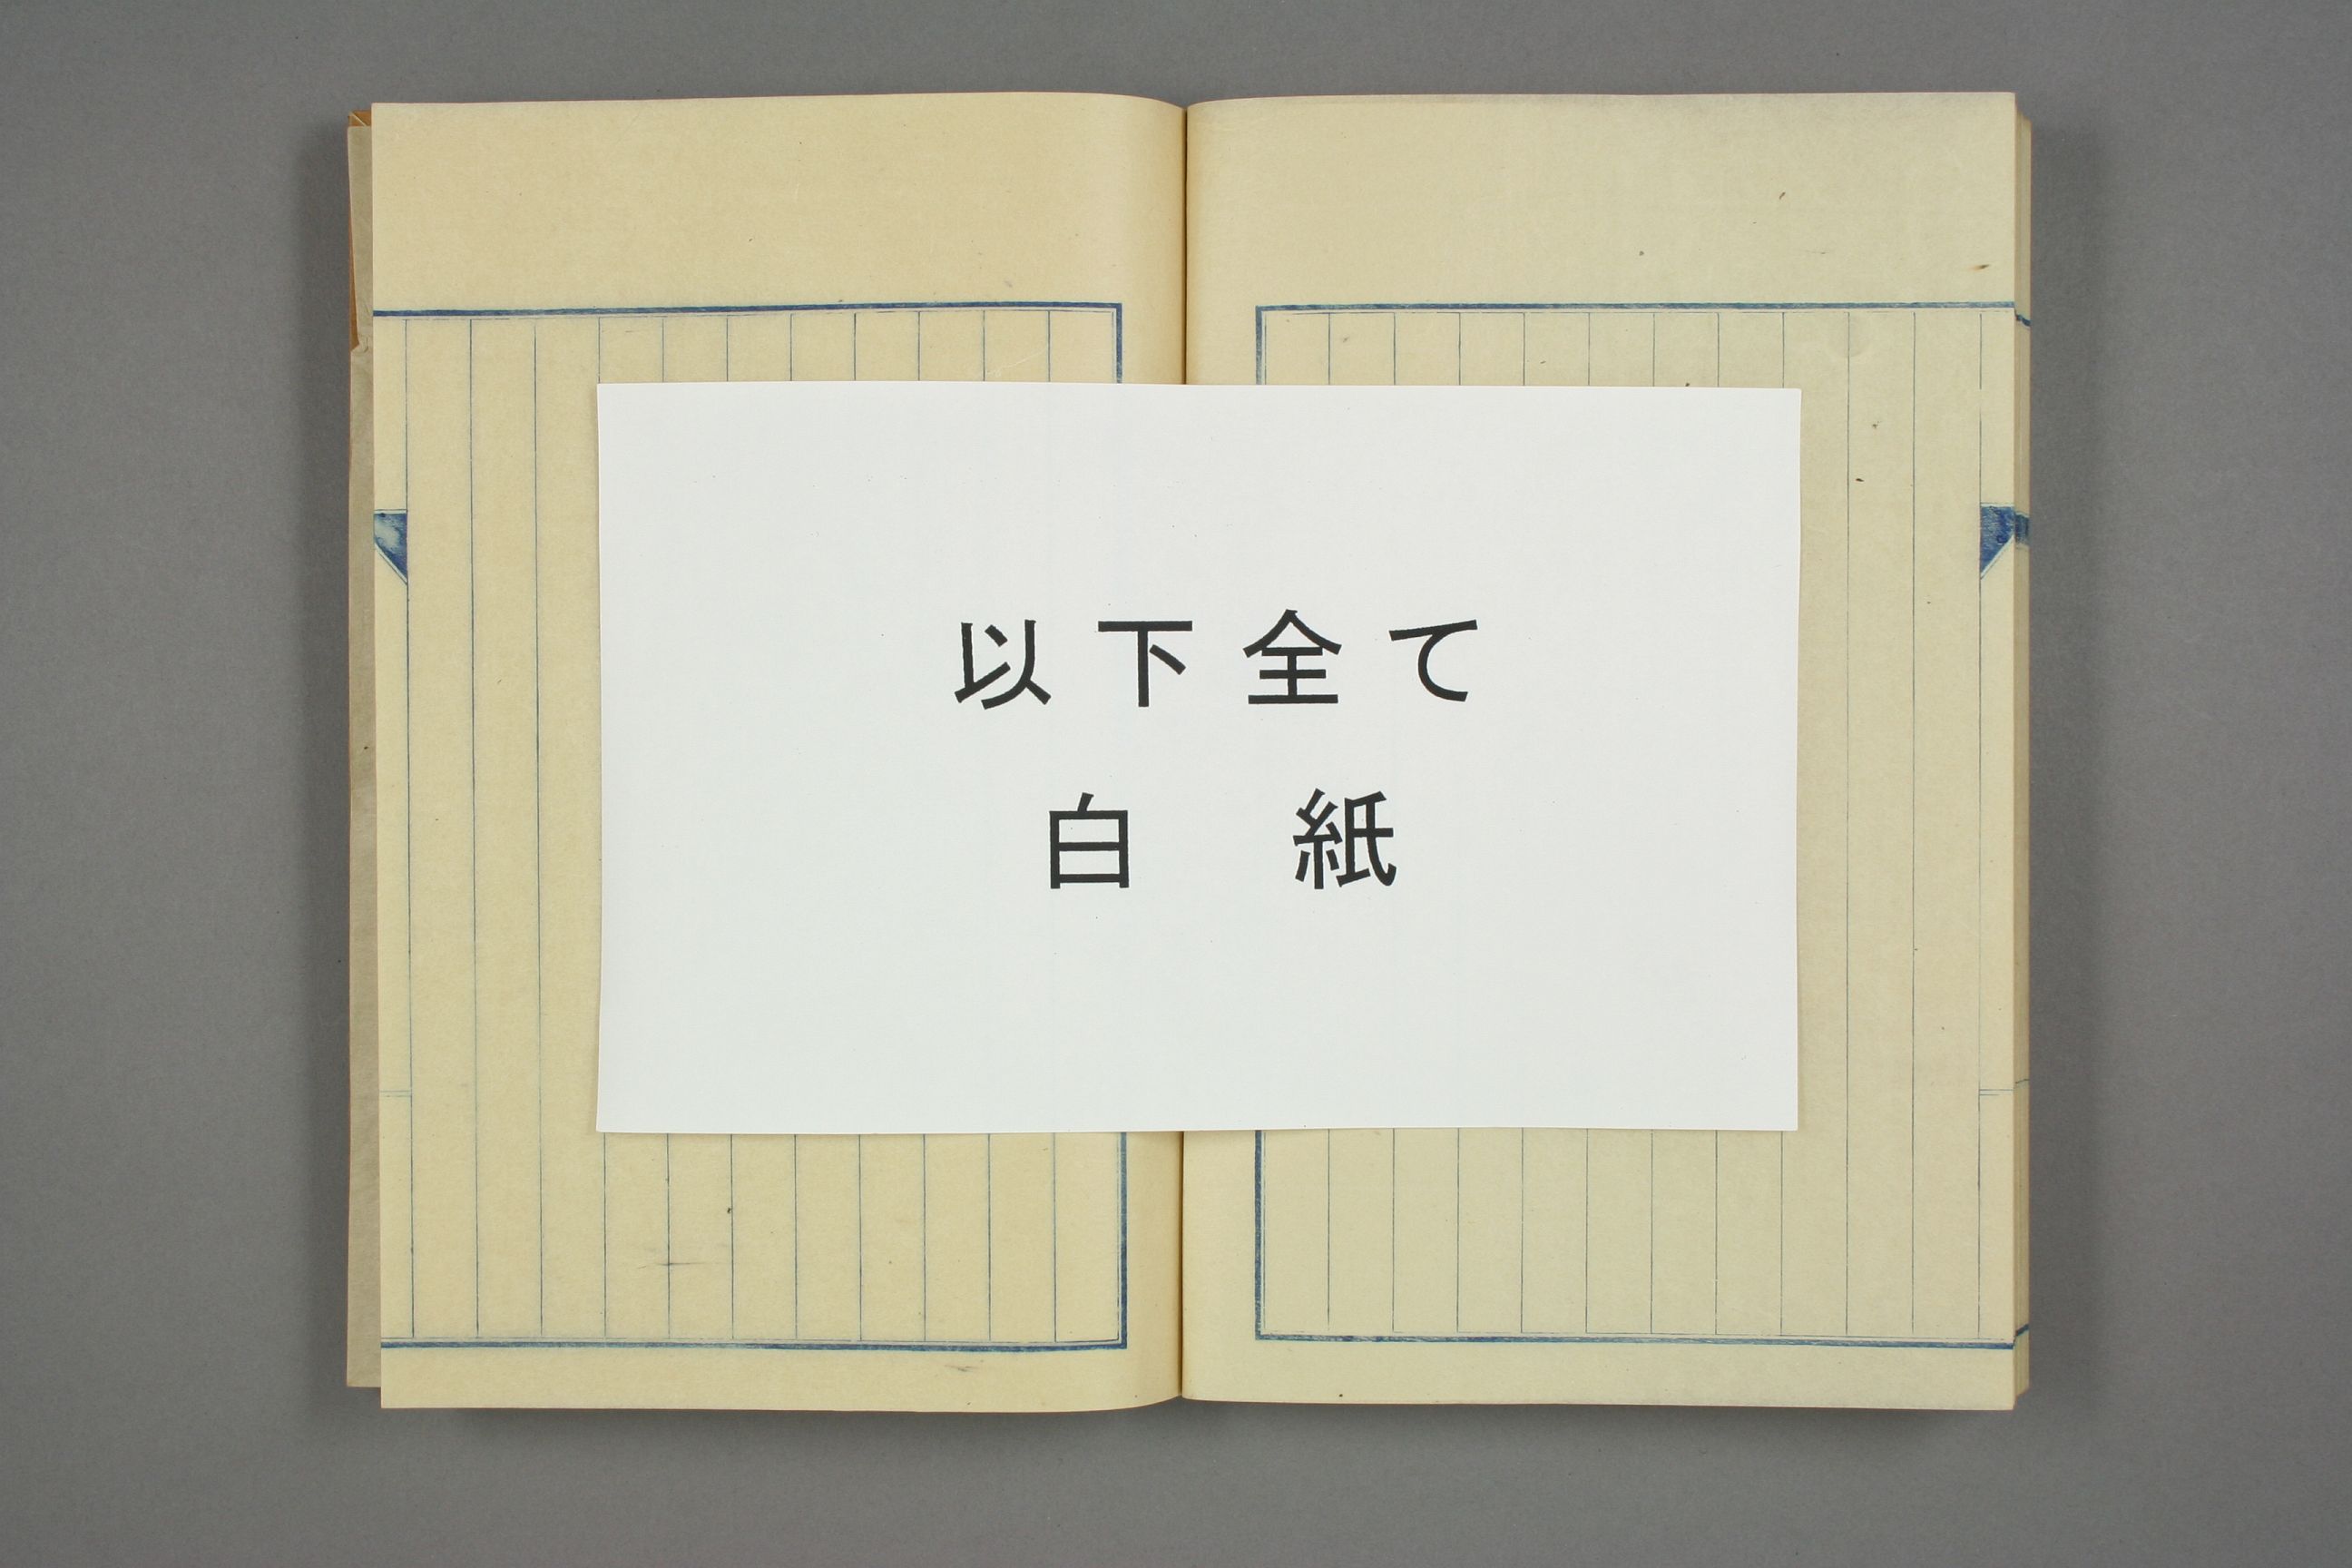 以下全て
白　紙